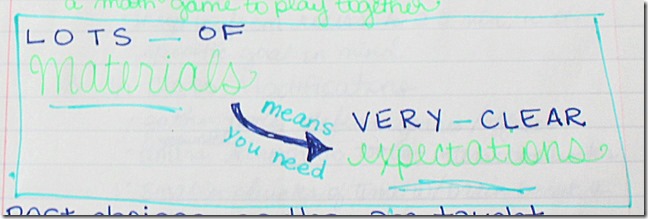 a math game to play together
LOTS — OF
Materials
means
you need
VERY — CLEAR
expectations